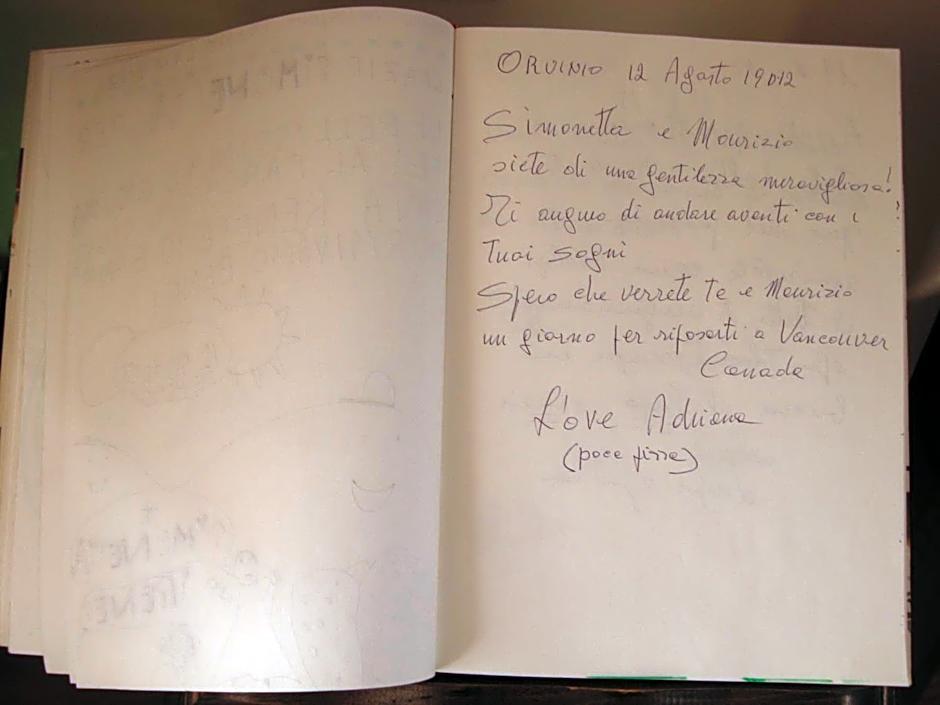 ORVINIO 12 Agosto 19012
Simonetta e Maurizio
siete di una gentilezza meravigliosa!
Mi auguro di andare avanti con i !
Tuoi sogni
Spero che verrete Te e Maurizio
un giorno per riposarti a Vancouver
Canada
L'ove Adriana
(poce